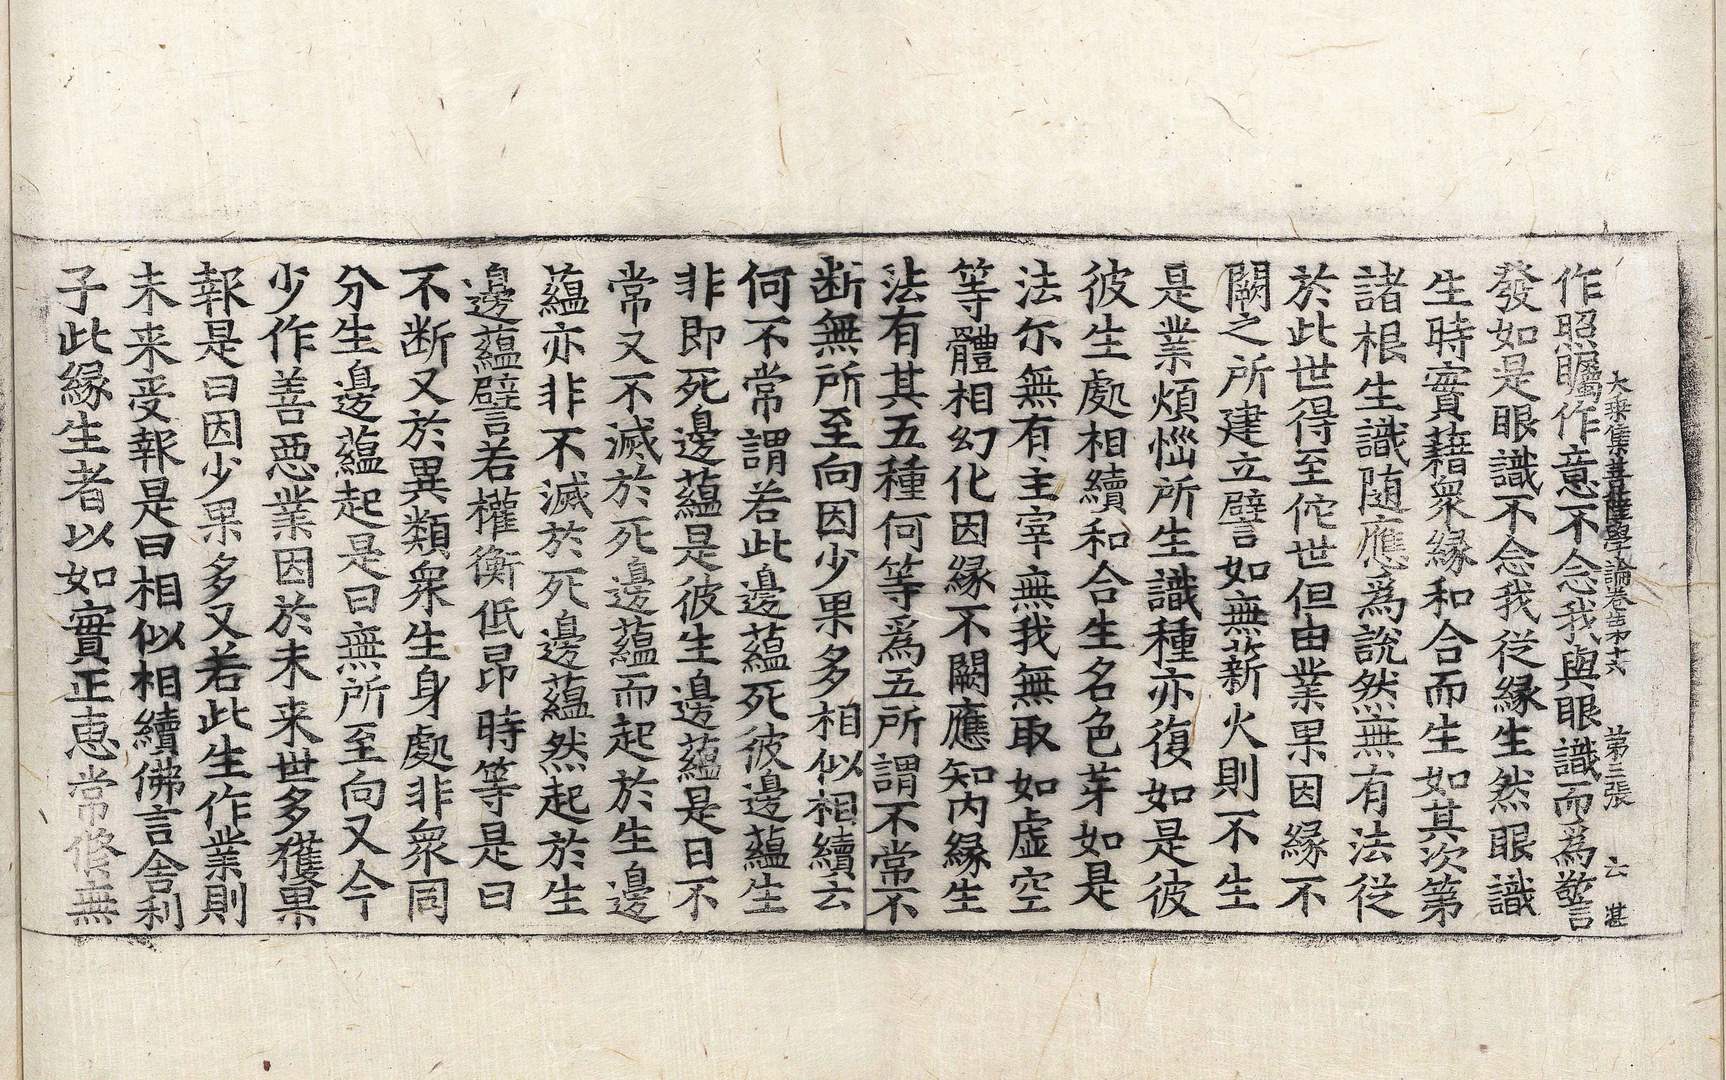 大乗集菩薩學論卷苐十六　苐三張　云
作照矚作意不念我與眼識而爲警
發如是眼識不念我従縁生然眼識
生時實藉衆縁和合而生如其次第
諸根生識随應爲說然無有法従
於此世得至佗世但由業果因縁不
闕之所建立譬如無薪火則不生
是業煩惱所生識種亦復如是彼
彼生處相續和合生名色芽如是
法尓無有主宰無我無取如虚空
等體相幻化因縁不闕應知内縁生
法有其五種何等爲五所謂不常不
断無所至向因少果多相似相續云
何不常謂若此邊蘊死彼邊蘊生
非即死邊蘊是彼生邊蘊是曰不
常又不滅於死邊蘊而起於生邊
蘊亦非不滅於死邊蘊然起於生
邊蘊譬若權衡低昂時等是曰
不断又於異類衆生身處非衆同
分生邊蘊起是曰無所至向又今
少作善惡業因於未来世多獲果
報是曰因少果多又若此生作業則
未来受報是曰相似相續佛言舍利
子此縁生者以如實正恵常修無